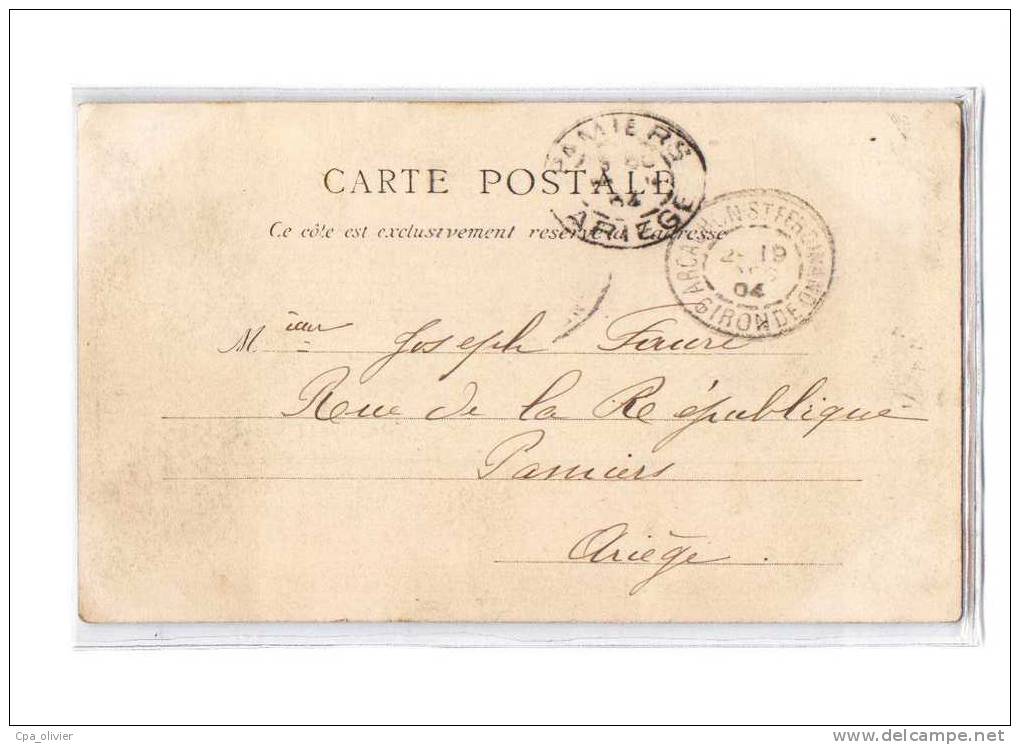 PAMIERS
04
ARIEGE
CARTE POSTALE
Ce côté est exclusivement réservé à l'adresse
ARCACHON ST FERDINAND
2- 19
04
GIRONDE
Mieur Joseph Faure
Rue de la République
Pamiers
Ariège.
Cpa_olivier
www.delcampe.net